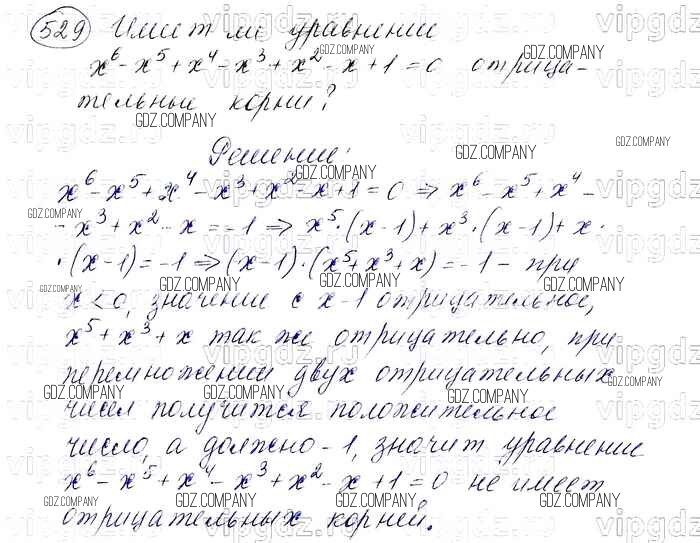 529 Имеет ли уравнение
x⁶ - x⁵ + x⁴ - x³ + x² - x + 1 = 0 отрица-
тельные корни?
Решение:
x⁶ - x⁵ + x⁴ - x³ + x² - x + 1 = 0 ⇒ x⁶ - x⁵ + x⁴ -
- x³ + x² - x = -1 ⇒ x⁵·(x-1) + x³·(x-1) + x·
·(x-1) = -1 ⇒ (x-1)·(x⁵+x³+x) = -1 - при
x < 0, значение с x-1 отрицательное,
x⁵ + x³ + x так же отрицательно, при
перемножении двух отрицательных
чисел получится положительное
число, а должно -1, значит уравнение
x⁶ - x⁵ + x⁴ - x³ + x² - x + 1 = 0 не имеет
отрицательных корней.